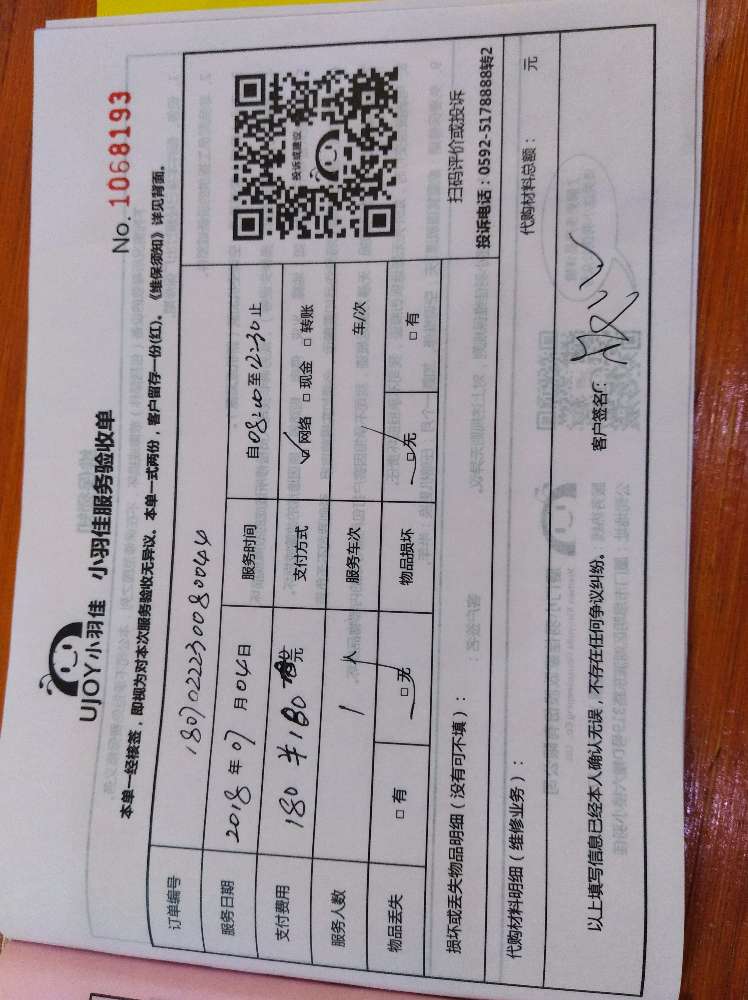 UJOY小羽佳 小羽佳服务验收单
No. 1068193
本单一经核签，即视为对本次服务验收无异议。本单一式两份，客户留存一份(红)。《维保须知》详见背面。
订单编号 1807022230080044
服务日期 2018年07月04日 服务时间 自08:00至12:30止
支付费用 180 ¥180元 支付方式 网络 现金 转账
服务人数 1人 服务车次 车/次
物品丢失 有 无 物品损坏 无 有
投诉或建议
扫码评价或投诉
投诉电话：0592-5178888转2
损坏或丢失物品明细（没有可不填）：
代购材料明细（维修业务）： 代购材料总额： 元
以上填写信息已经本人确认无误，不存在任何争议纠纷。 客户签名：